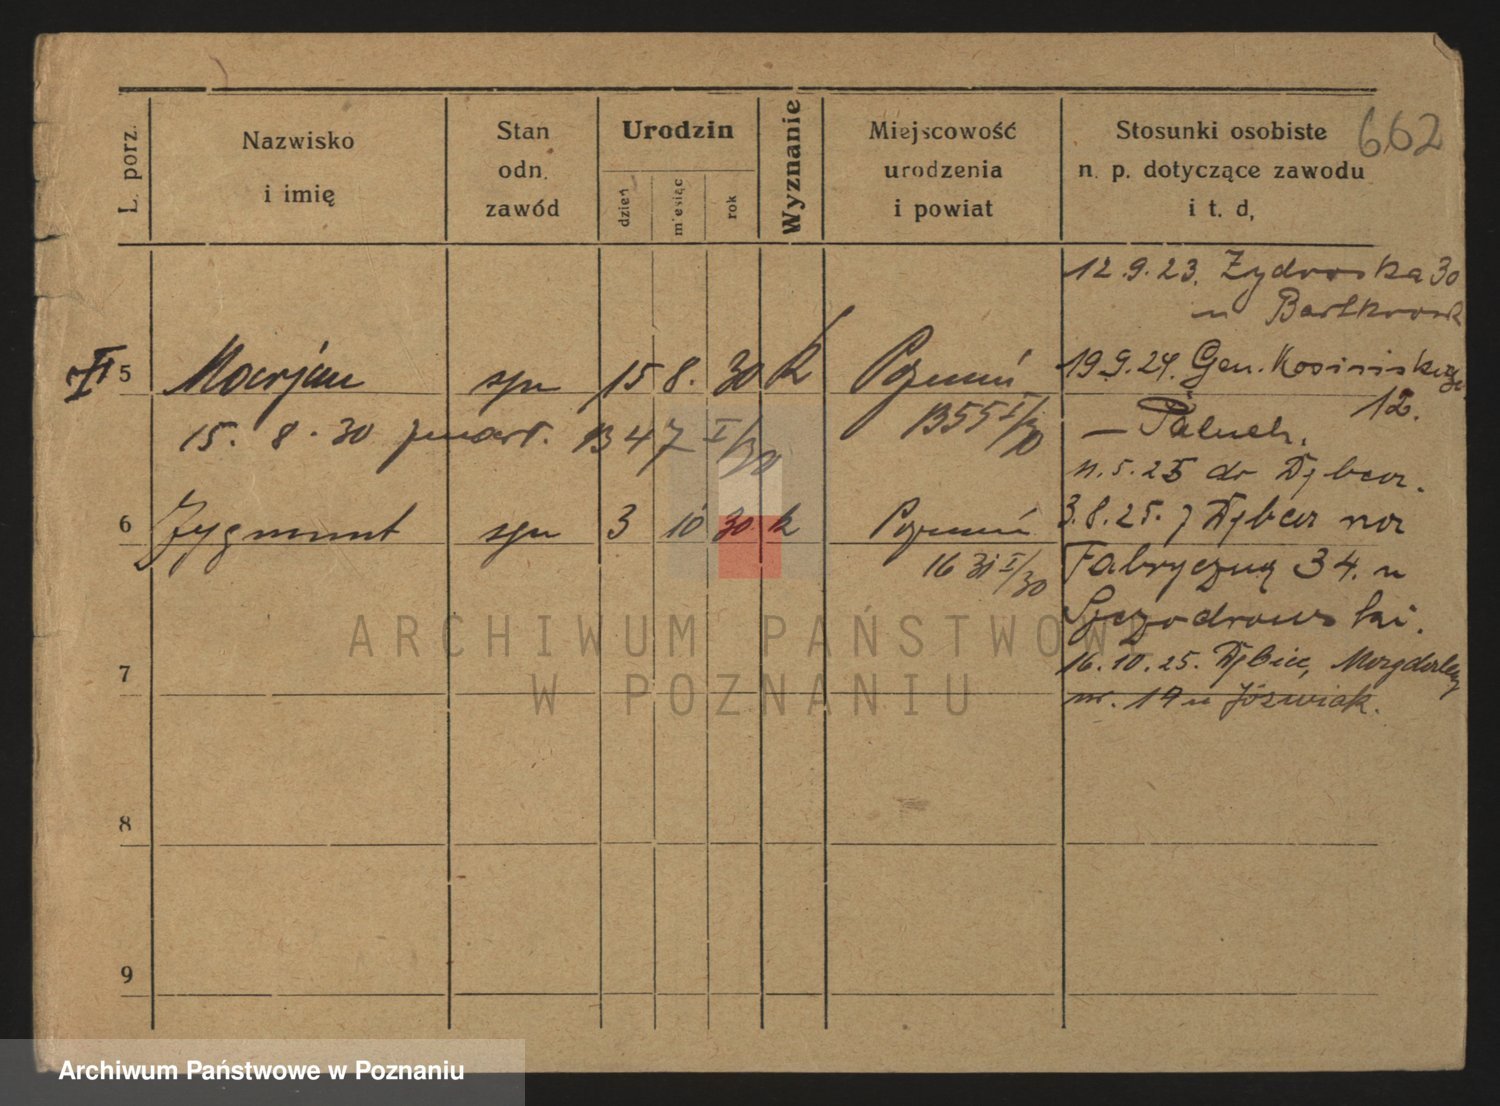 662
L. porz.
Nazwisko
i imię
Stan
odn.
zawód
Urodzin
dzień
miesiąc
rok
Wyznanie
Miejscowość
urodzenia
i powiat
Stosunki osobiste
n. p. dotyczące zawodu
i t. d,
12.9.23. Żydowska 30
u Bartkowiak
5 Marjan syn 15 8. 30 k Poznań
1355 I/30
19.9.24. Gen. Kosińskiego
12.
15. 8. 30 zmarł. 1347 I/30
– Paluch.
11.5.25 do Dębca.
6 Zygmunt syn 3 10 30 k Poznań
1630 I/30
3.8.25. z Dębca na
Fabryczną 34. u
Szczodrowski.
16.10.25. Dębiec,
nr. 19 u Jóźwiak.
7
8
9
ARCHIWUM PAŃSTWOWE
W POZNANIU
Archiwum Państwowe w Poznaniu